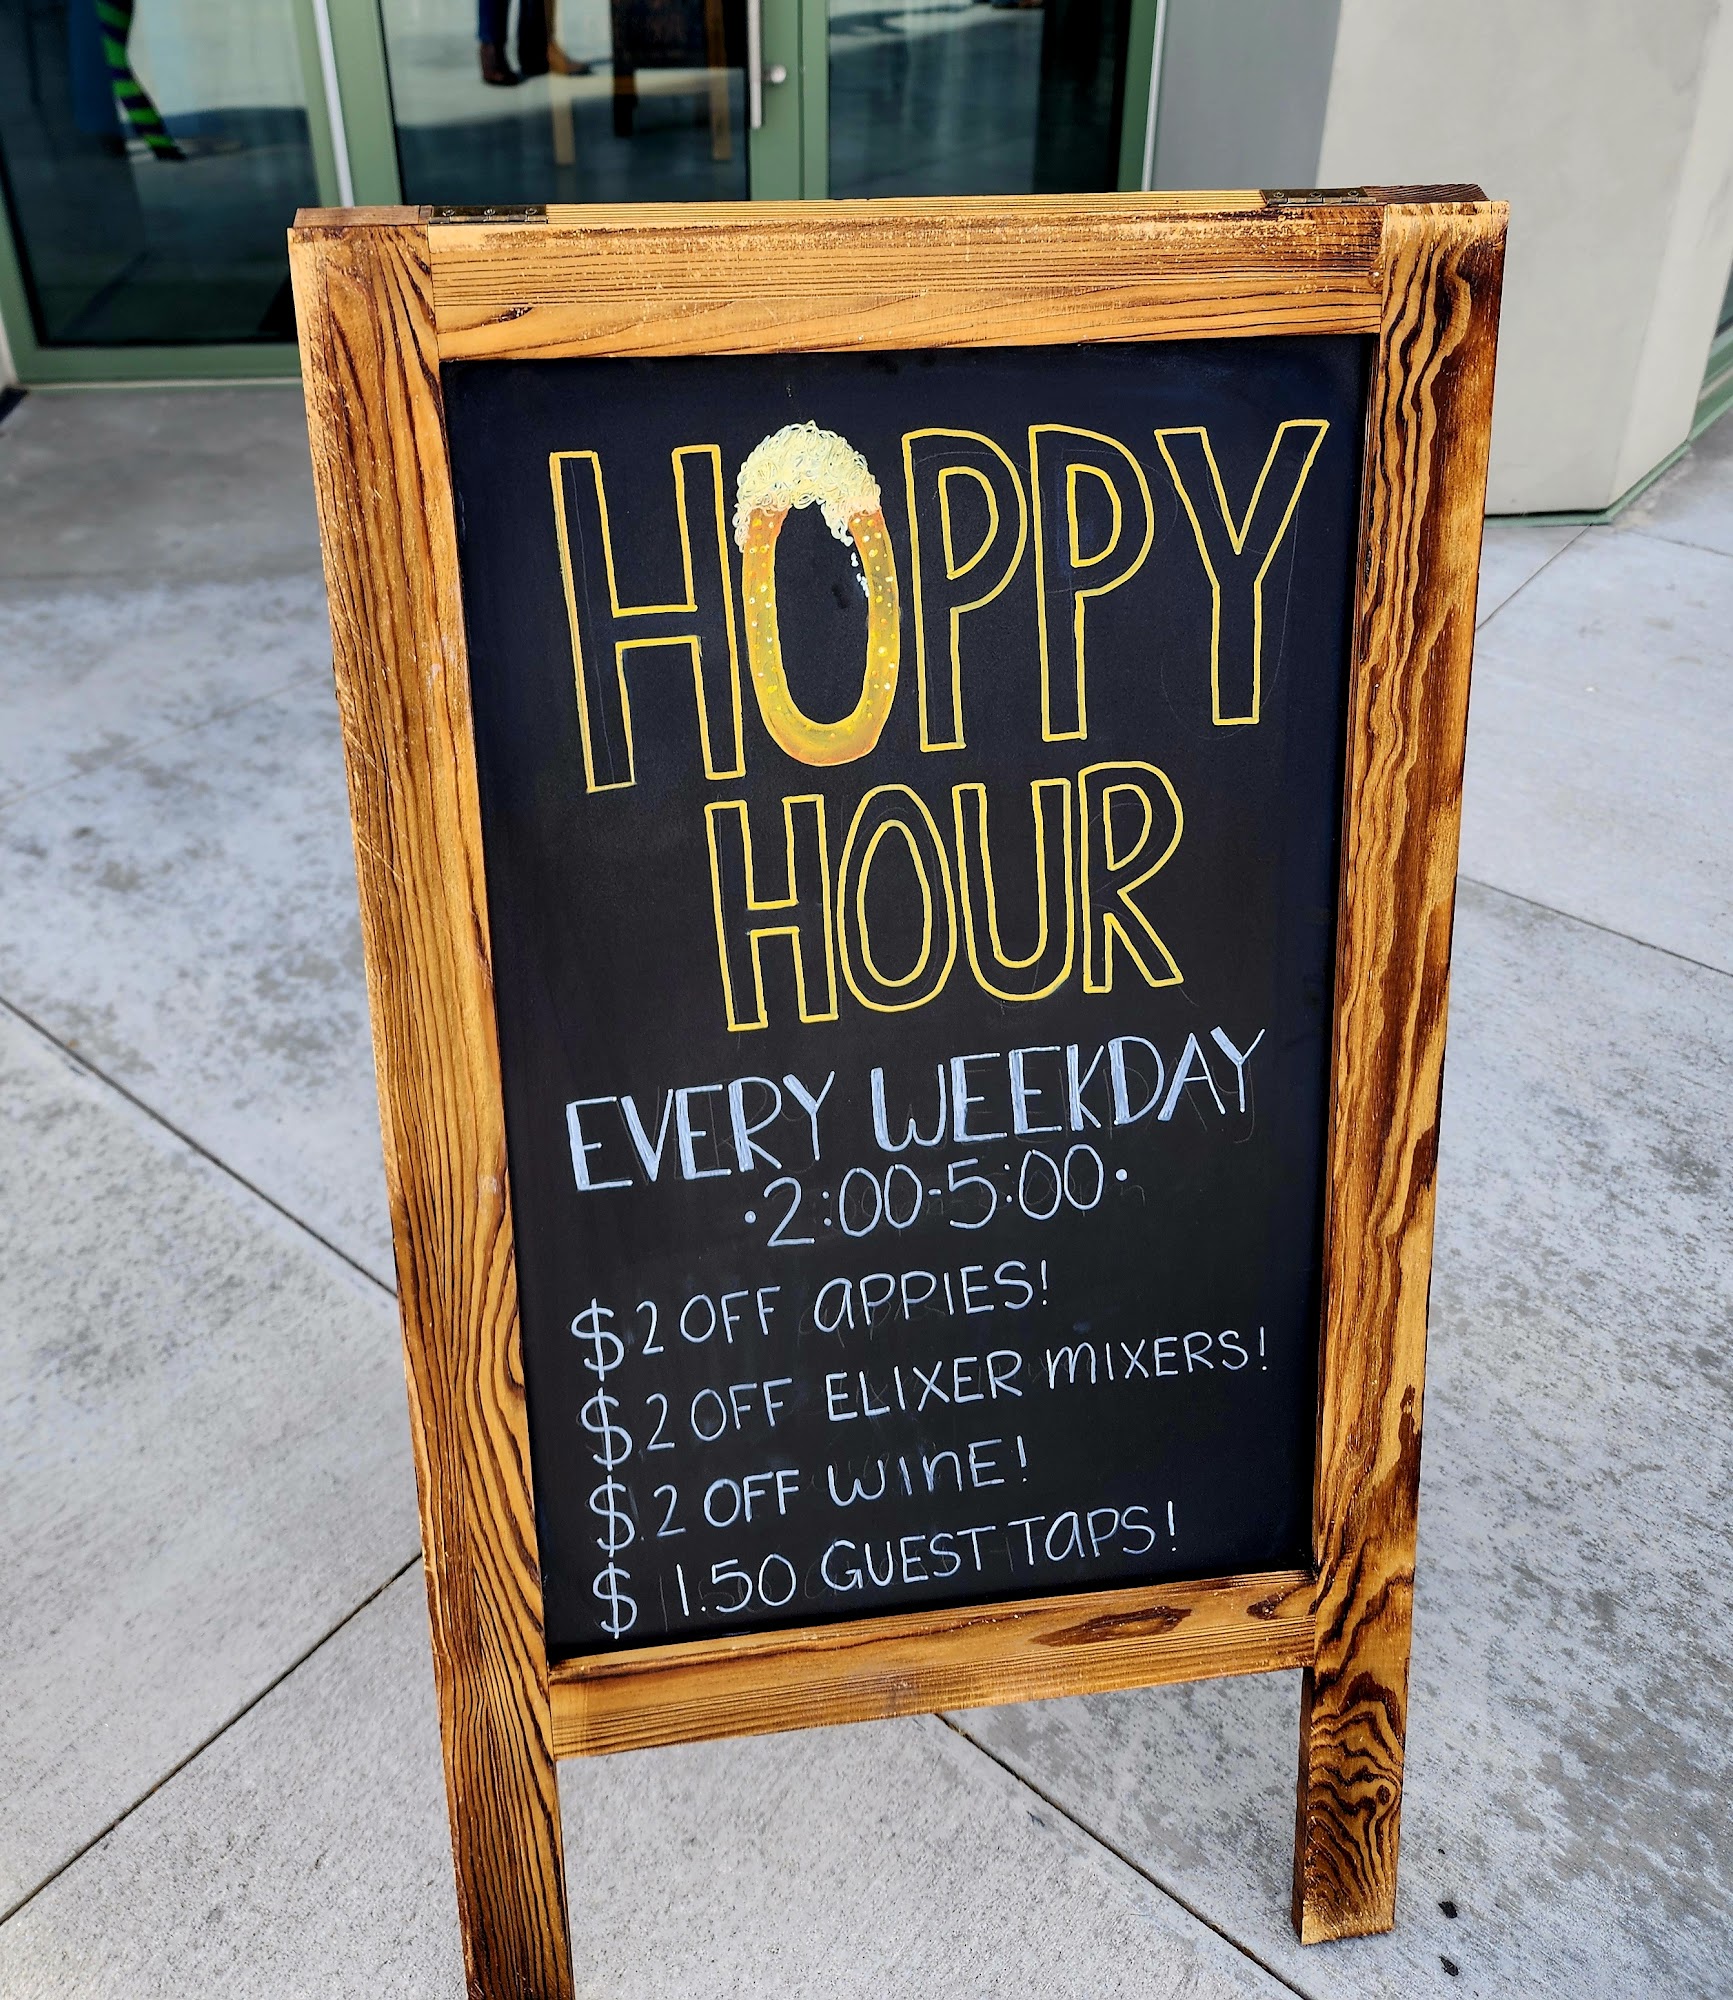 HOPPY
HOUR
EVERY WEEKDAY
•2:00-5:00•
$2 OFF APPIES!
$2 OFF ELIXER MIXERS!
$2 OFF WINE!
$1.50 GUEST TAPS!